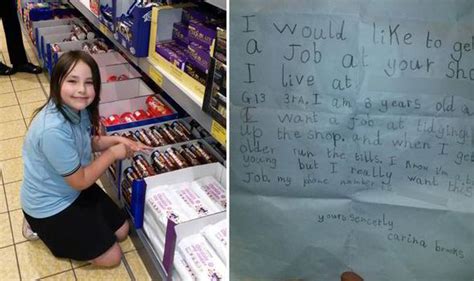 I would like to get
a Job at your Sh
I live at
G13 3RA. I am 8 years old a
I want a job at tidying
up the shop. and when I ge
older run the tills. I know i'm a bit
young but I really want this
Job. my phone number is
yours sencerly
carina brooks